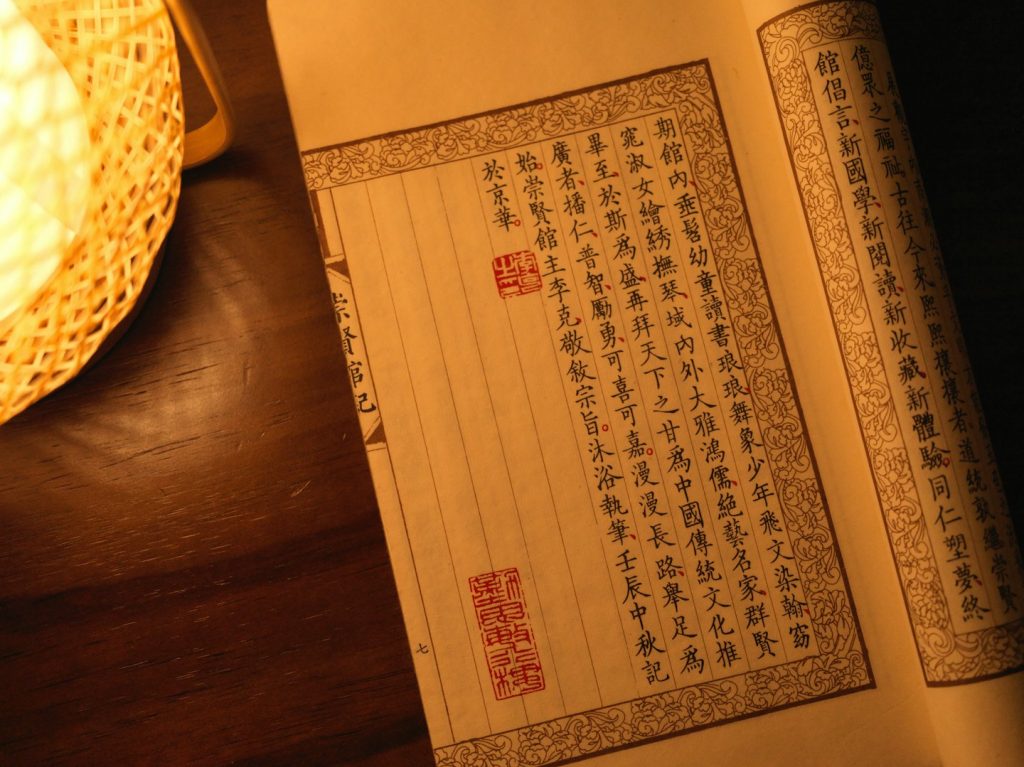 億眾之福祉古往今來熙熙攘攘者道統孰繼崇賢
館倡言、新國學、新閱讀、新收藏、新體驗。同仁塑夢、終
期館內、垂髫幼童讀書琅琅、舞象少年飛文染翰、窈
窕淑女繪綉撫琴、域內外大雅鴻儒、絕藝名家、群賢
畢至、於斯為盛、再拜天下之甘為中國傳統文化推
廣者、播仁、普智、勵勇、可喜可嘉。漫漫長路、舉足為
始。崇賢館主李克敬敘宗旨。沐浴執筆、壬辰中秋記
於京華。
崇賢館記
七